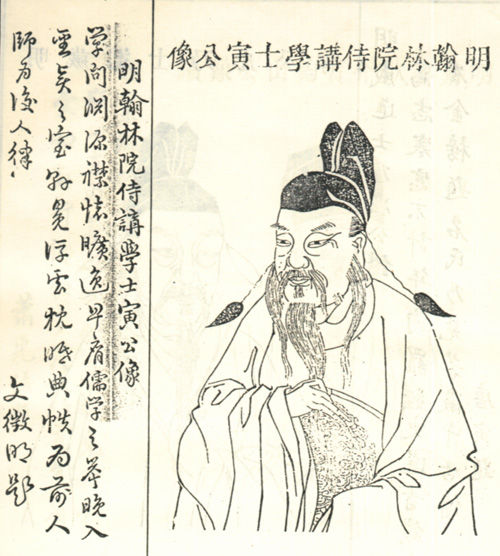 明翰林院侍講學士寅公像
明翰林院侍講學士寅公像
学问渊源襟懷曠逸早膺儒学之举晚入
聖賢之室軒冕浮雲枕藉典帙为前人
師为後人律
文徵明題